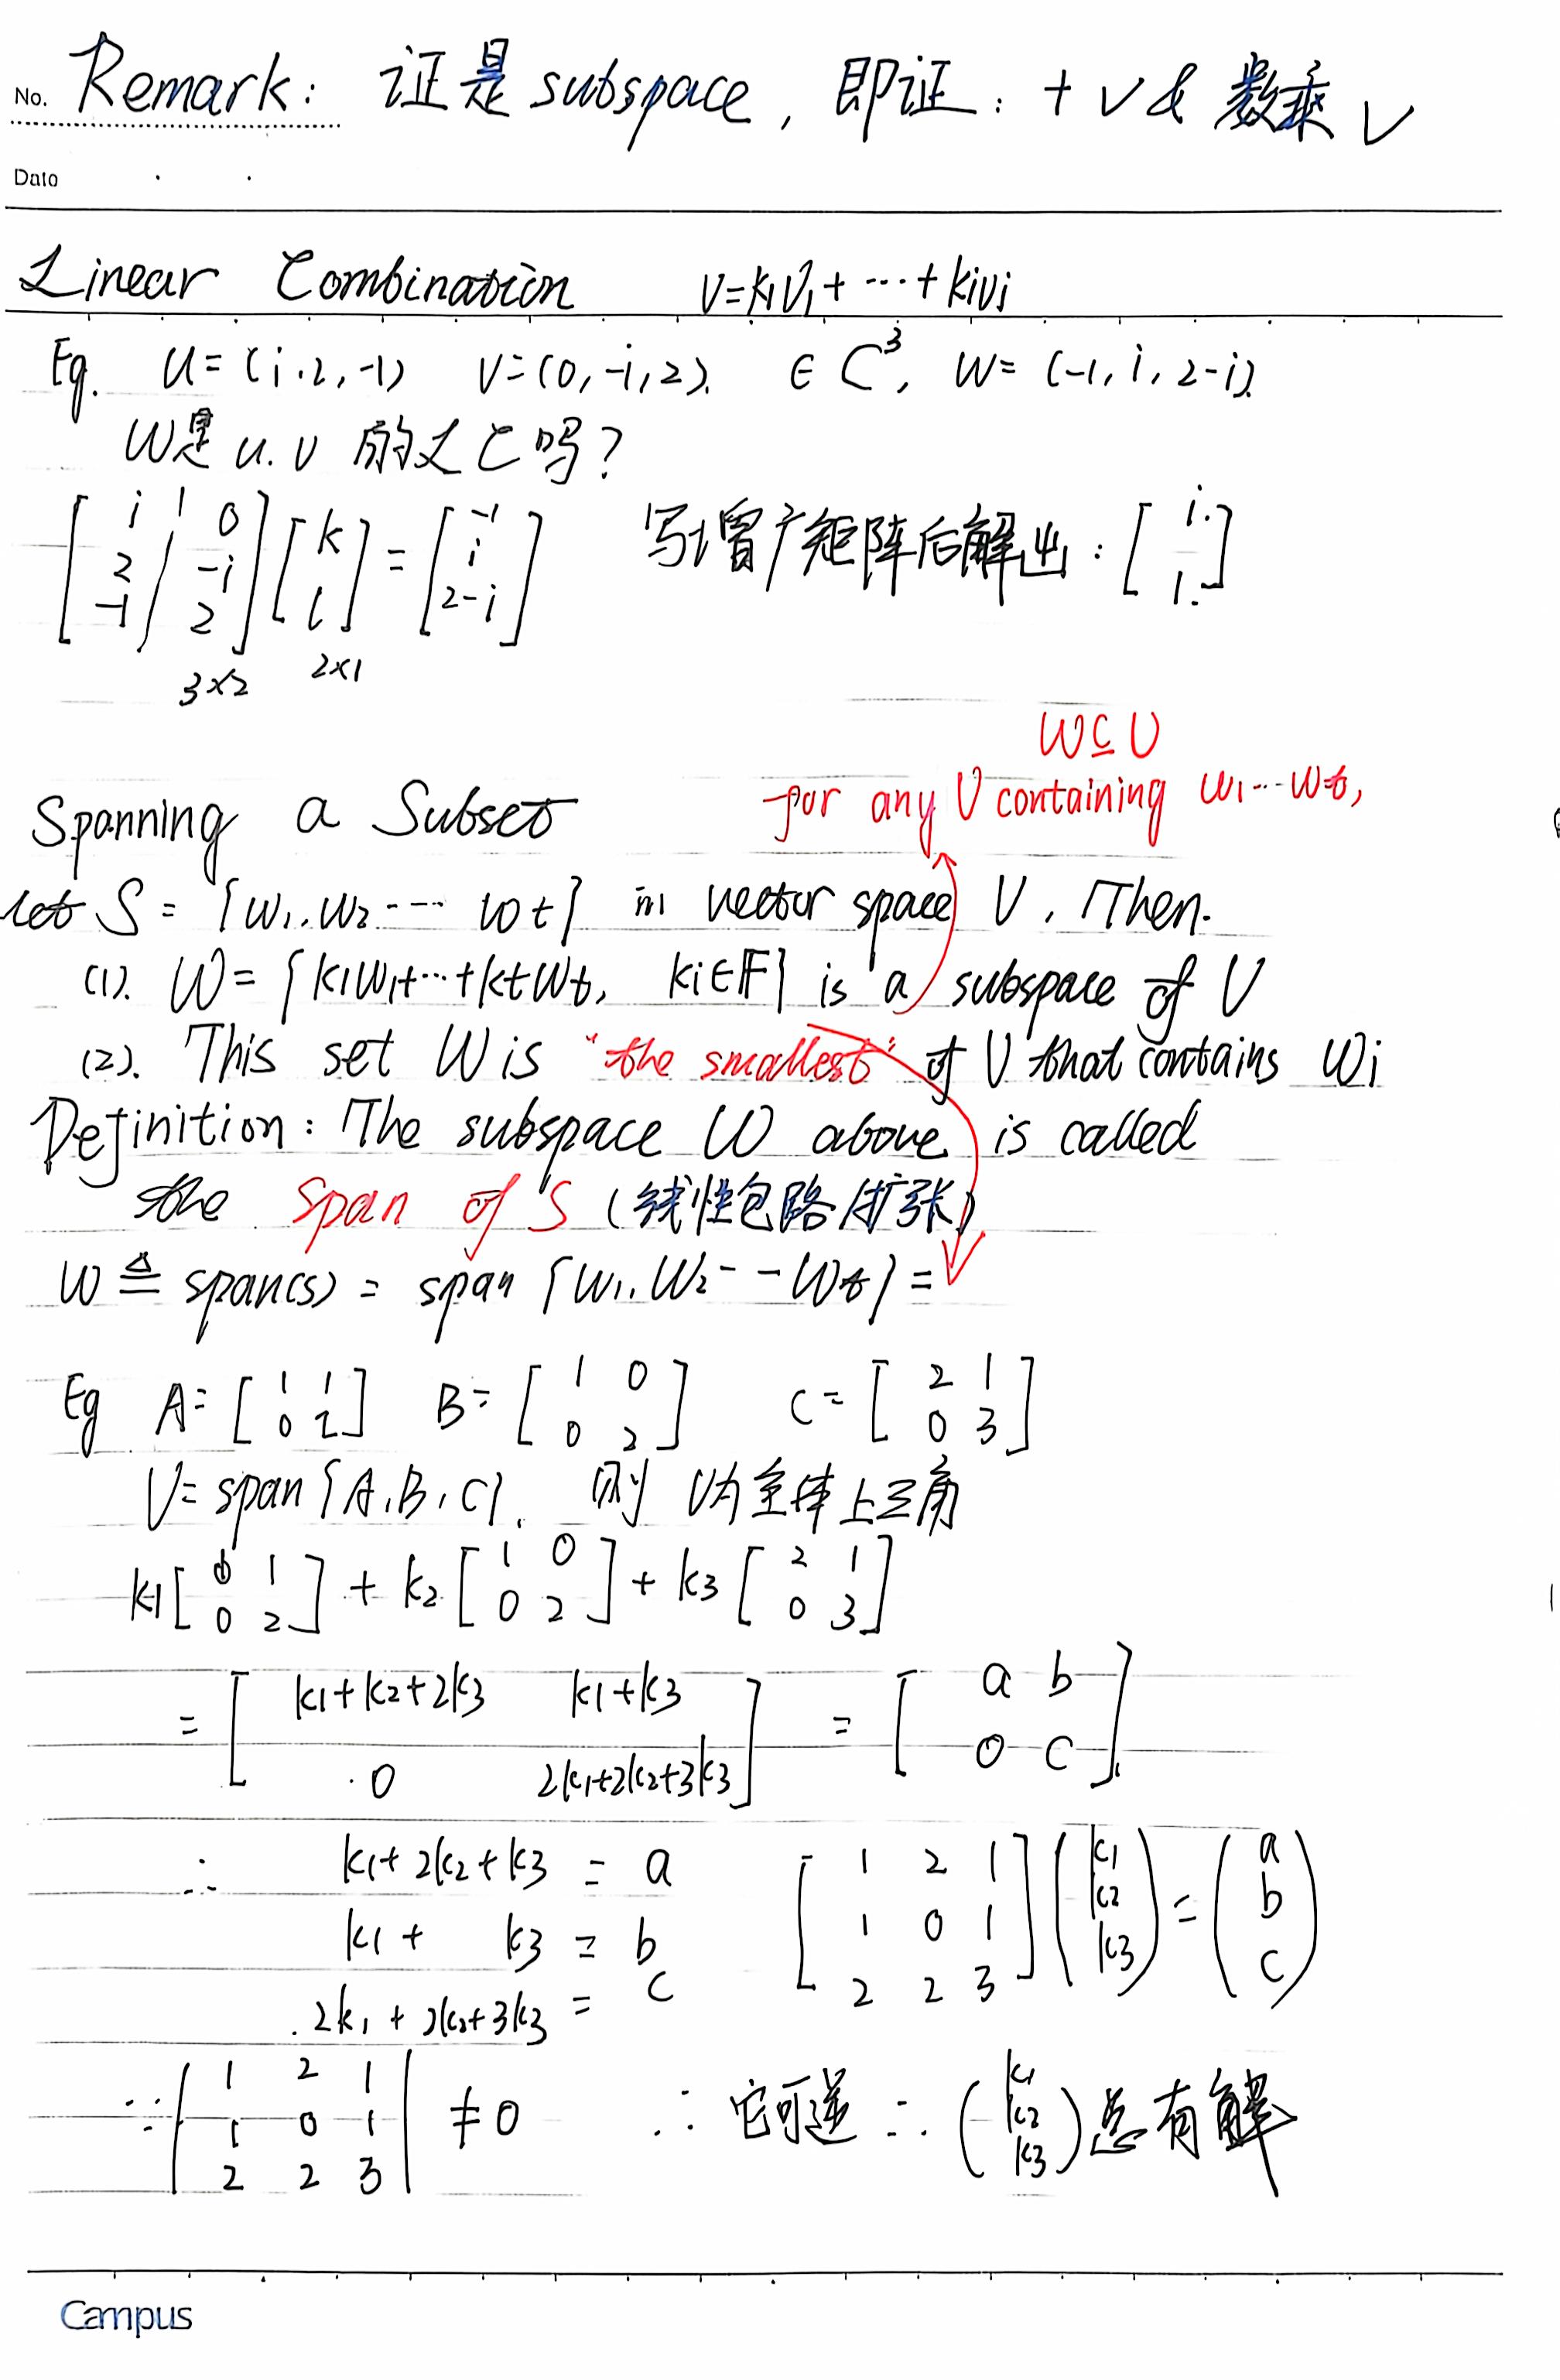 No. Remark: 证是 subspace, 即证: + √ & 数乘 √
Date
Linear Combination V=k1V1+ ⋯ + kivi
Eg. U=(i.2,-1) V=(0,-i,2). ∈ C^3, W=(-1, i, 2-i).
W是 u.v 的LC吗?
[ i 0 ; 2 -i ; -1 2 ] [ k ; l ] = [ -1 ; i ; 2-i ] 写增广矩阵后解出: [ i. ; 1. ]
3×2 2×1
W⊆U
Spanning a Subset for any U containing w1⋯wt,
let S = {w1..w2 ---- wt} in vector space V. Then.
(1). W = {k1w1+⋯+ktwt, ki∈F} is a subspace of V
(2). This set W is "the smallest" of V that contains wi
Definition: The subspace W above is called
the span of S (线性包络/扩张)
W ≜ span(s) = span {w1..w2 -- wt} =
Eg A= [ 1 1 ; 0 2 ] B= [ 1 0 ; 0 2 ] C= [ 2 1 ; 0 3 ]
V= span {A.B.C}. 则 V为全体上三角
k1 [ 1 ; 0 2 ] + k2 [ 1 0 ; 0 2 ] + k3 [ 2 1 ; 0 3 ]
= [ k1+k2+2k3 k1+k3 ; 0 2k1+2k2+3k3 ] = [ a b ; 0 c ]
∴ k1+2k2+k3 = a [ 1 2 1 ; 1 0 1 ; 2 2 3 ] ( k1 ; k2 ; k3 ) = ( a ; b ; c )
k1 + k3 = b
2k1 + 2k2+3k3 = c
∵ | 1 2 1 ; 1 0 1 ; 2 2 3 | ≠ 0 ∴ 它可逆 ∴ ( k1 ; k2 ; k3 ) 总有解
Campus